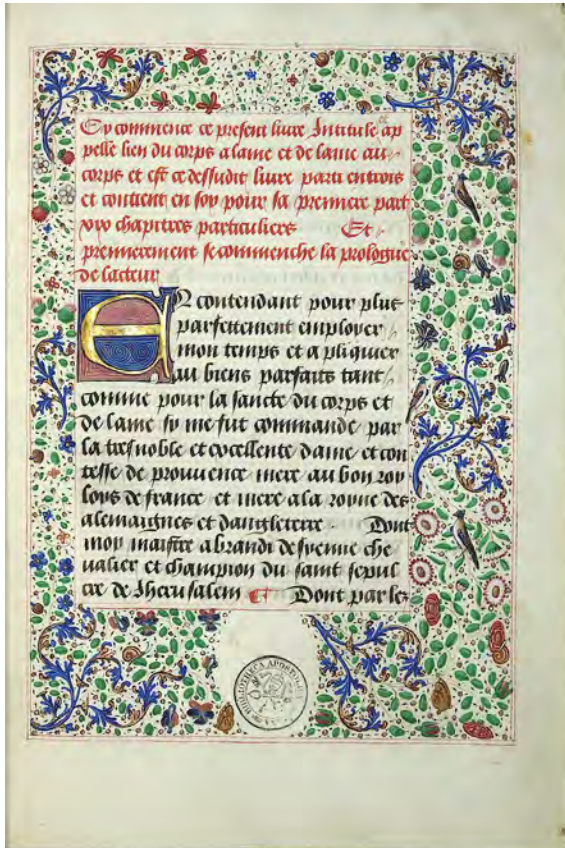 Cy commence ce present livre Intitule ap
pelle lien du corps a lame et de lame au
corps et est ce dessusdit livre parti en trois
et contient en soy pour sa premiere part
xxv chapitres particuliers Et
premierement se commenche la prologue
de lacteur
En contendant pour plus
parfettement employer
mon temps et a pliquier
au biens parfaits tant
comme pour la sancte du corps et
de lame sy me fut commande par
la tresnoble et excellente dame et con
tesse de prouuence mere au bon roy
loys de france et mere a la royne des
alemaignes et dangleterre . Dont
moy maistre abrandi desyenne che
ualier et champion du saint sepul
cre de Jherusalem Dont par les
BIBLIOTHECA APOSTOLICA